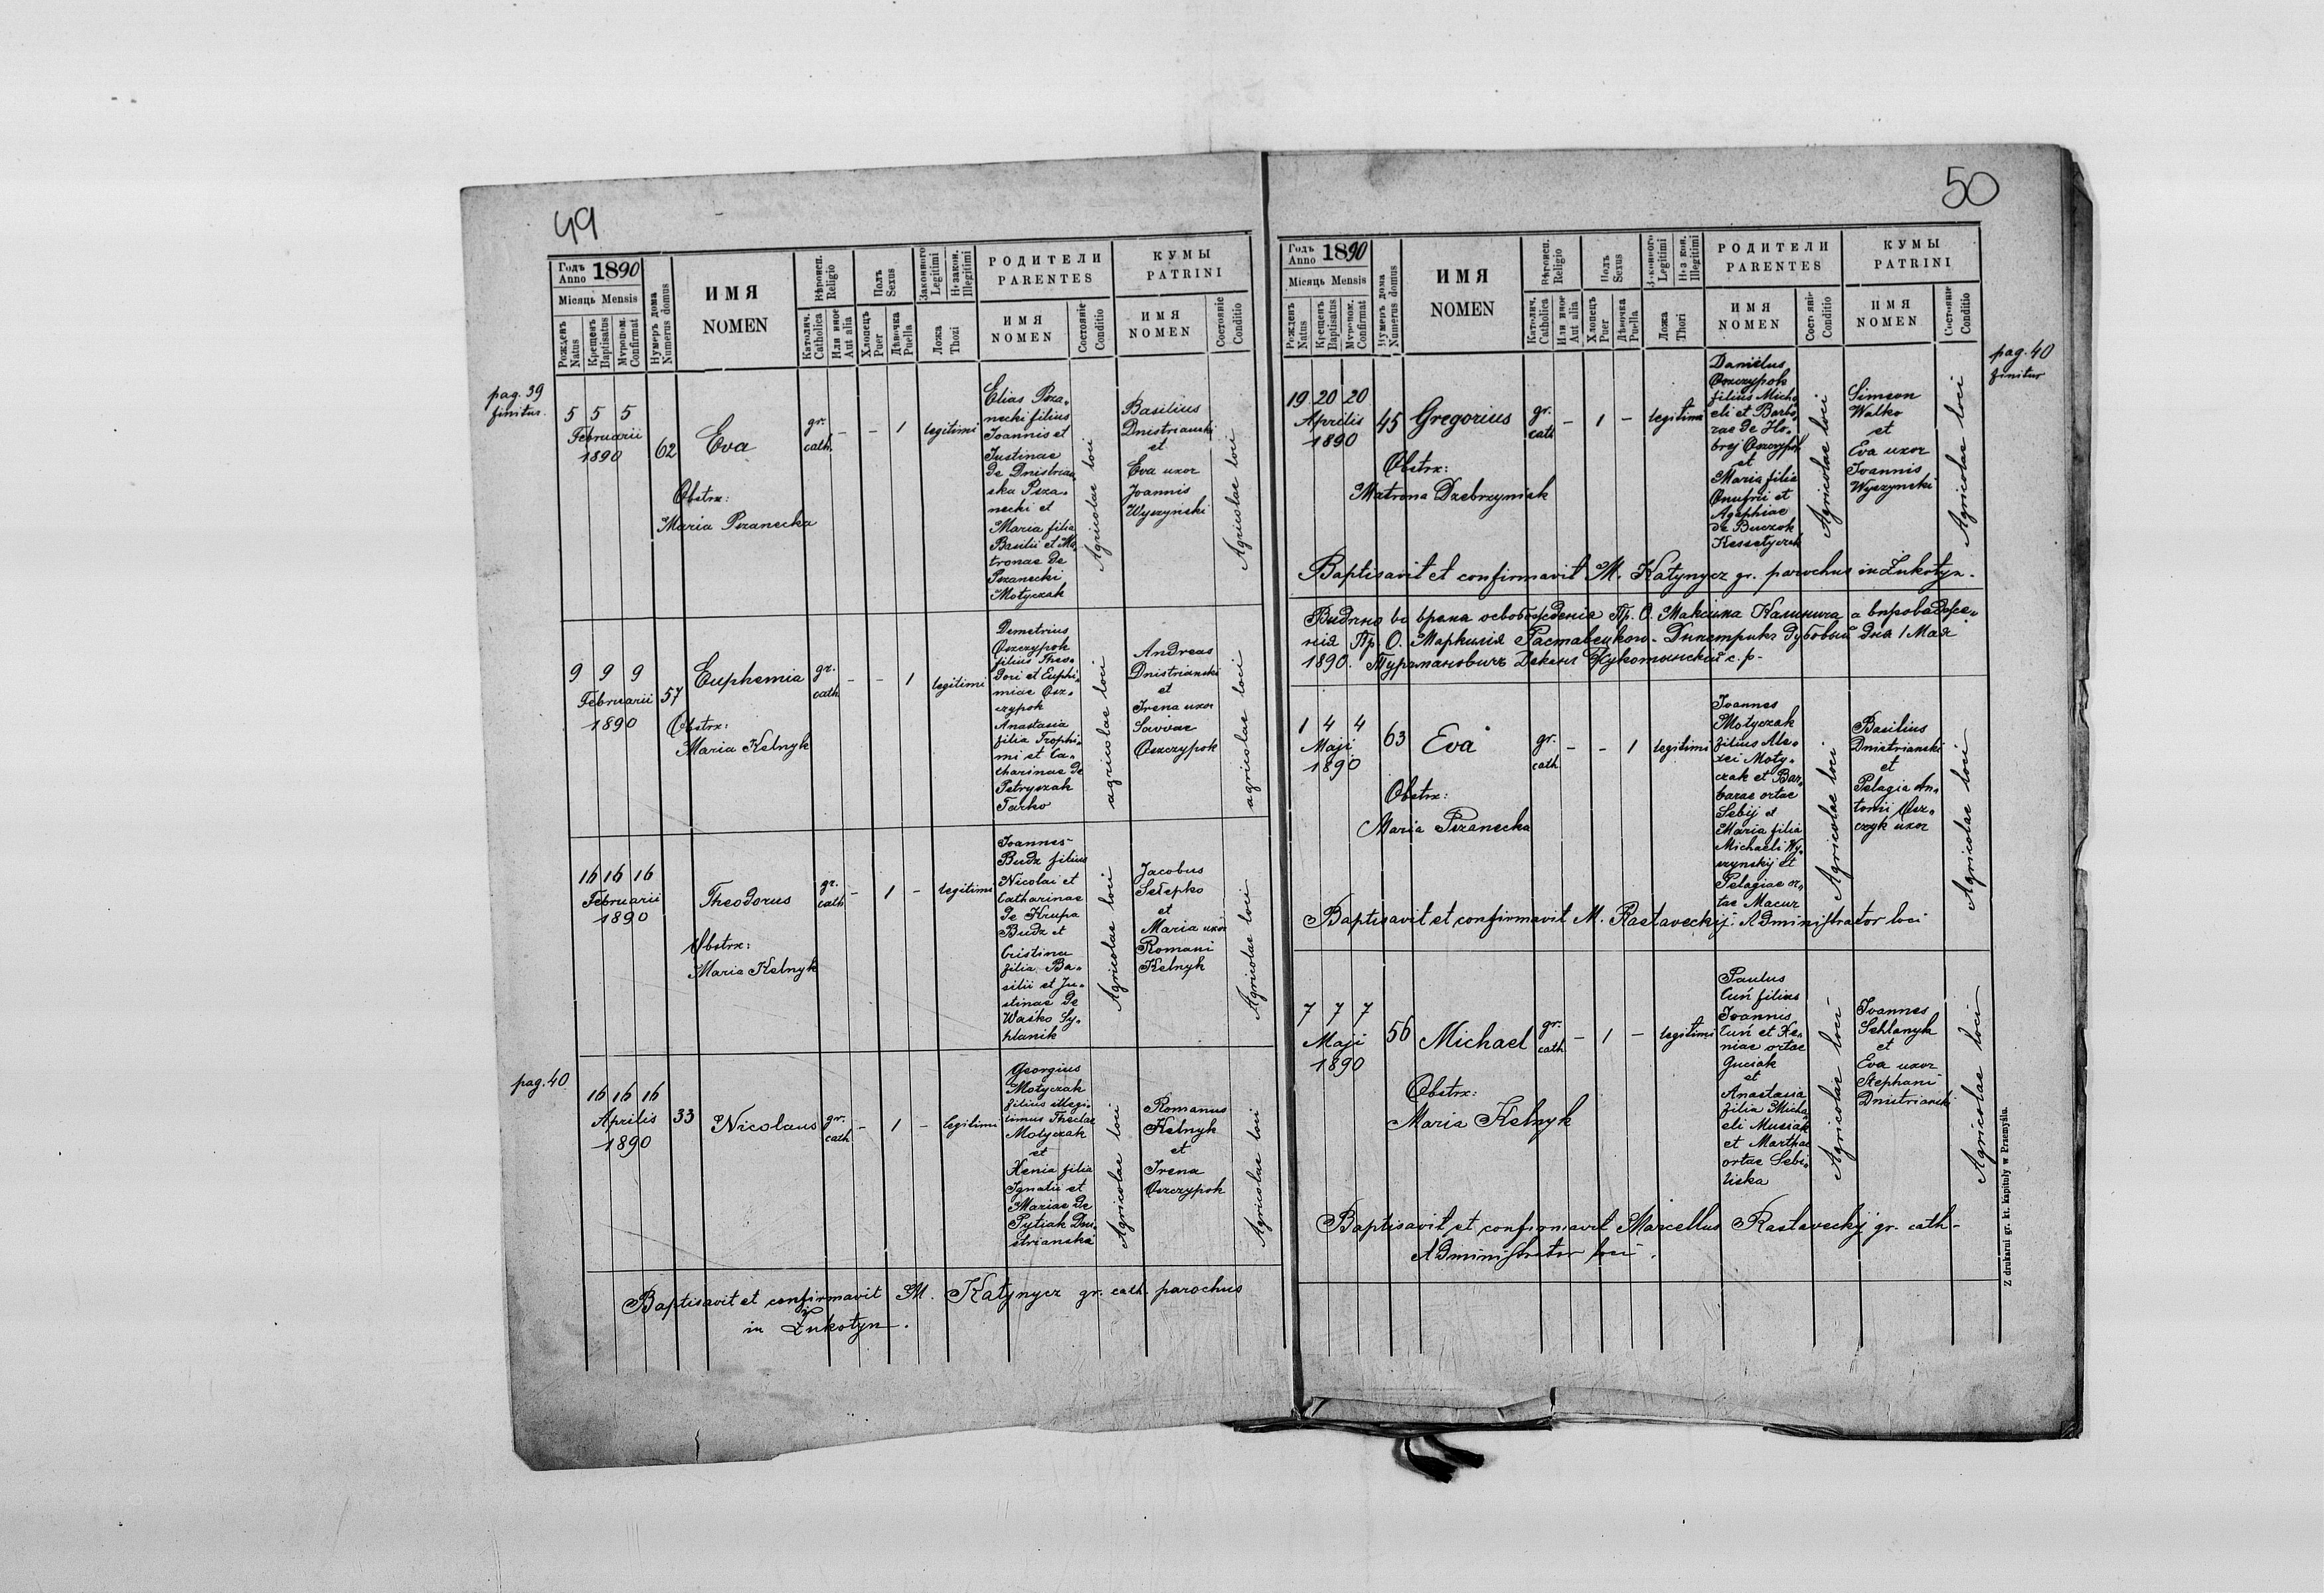 49
Годъ Anno 1890
Місяць Mensis
Рожденъ Natus
Крещенъ Baptisatus
Мѵропом. Confirmat
Нумеръ дома Numerus domus
ИМЯ
NOMEN
Вѣроисп. Religio
Католич. Catholica
Или иное Aut alia
Полъ Sexus
Хлопецъ Puer
Дѣвочка Puella
Законного Legitimi
Незакон. Illegitimi
Ложа Thori
РОДИТЕЛИ
PARENTES
ИМЯ
NOMEN
Состояніе Conditio
КУМЫ
PATRINI
ИМЯ
NOMEN
Состояніе Conditio
pag. 39
finitur.
5 5 5
Februarii
1890
62
Eva
Obstrx:
Maria Pszanecka
gr.
cath.
-
-
1
legitimi
Elias Psza-
necki filius
Joannis et
Justinae
de Dnistrian
ska Psza-
necki et
Maria filia
Basilii et Ma
tronae de
Pszanecki
Motyczak
Agricolae loci
Basilius
Dnistrianski
et
Eva uxor
Joannis
Wyszynski
Agricolae loci
9 9 9
Februarii
1890
57
Euphemia
Obstrx:
Maria Kelnyk
gr.
cath
-
-
1
legitimi
Demetrius
Oszczypok
filius Theo-
dori et Euphi-
miae Osz-
czypok
Anastasia
filia Trophi-
mi et Ca-
tharinae de
Petryszak
Tarko
agricolae loci
Andreas
Dnistrianski
et
Irena uxor
Savvae
Oszczypok
agricolae loci
16 16 16
Februarii
1890
Theodorus
Obstrx:
Maria Kelnyk
gr.
cath
-
1
-
legitimi
Joannes
Budz filius
Nicolai et
Catharinae
de Krupa
Budz et
Cristina
filia Ba-
silii et Ju-
stinae de
Waśko Sy-
hlanik
Agricolae loci
Jacobus
et
Maria uxor
Romani
Kelnyk
Agricolae loci
pag. 40
16 16 16
Aprilis
1890
33
Nicolaus
gr.
cath
-
1
-
legitimi
Georgius
Motyczak
filius illegi-
timus Theclae
Motyczak
et
Xenia filia
Ignatii et
Mariae de
Pytiak Dni-
strianska
Agricolae loci
Romanus
Kelnyk
et
Irena
Oszczypok
Agricolae loci
Baptisavit et confirmavit M. Katynycz gr. cath. parochus
in Łukotyn.
50
Годъ Anno 1890
Місяць Mensis
Рожденъ Natus
Крещенъ Baptisatus
Мѵропом. Confirmat
Нумеръ дома Numerus domus
ИМЯ
NOMEN
Вѣроисп. Religio
Католич. Catholica
Или иное Aut alia
Полъ Sexus
Хлопецъ Puer
Дѣвочка Puella
Законного Legitimi
Незакон. Illegitimi
Ложа Thori
РОДИТЕЛИ
PARENTES
ИМЯ
NOMEN
Состояніе Conditio
КУМЫ
PATRINI
ИМЯ
NOMEN
Состояніе Conditio
pag. 40
finitur
19 20 20
Aprilis
1890
45
Gregorius
Obstrx:
Matrona Dzebrzyniak
gr.
cath
-
1
-
legitimi
Daniëlus
Oszczypok
filius Micha
eli et Barba-
rae de Ho-
brej Oszczypok
et
Maria filia
Onufrii et
Agaphiae
de Buczok
Kessetyczak
Agricolae loci
Simeon
Walko
et
Eva uxor
Joannis
Wyszynski
Agricolae loci
Baptisavit et confirmavit M. Katynycz gr. parochus in Łukotyn.
1890.
1 4 4
Maji
1890
63
Eva
Obstrx:
Maria Pszanecka
gr.
cath
-
-
1
legitimi
Joannes
Motyczak
filius Ale-
xei Moty-
czak et Bar-
barae ortae
Sebij et
Maria filia
Michaeli Wy-
szynskij et
Pelagiae or-
tae Macur
Agricolae loci
Basilius
Dnistrianski
et
Pelagia An-
tonii Osz-
czyk uxor
Agricolae loci
Baptisavit et confirmavit M. Rastaveckij: Administrator loci
7 7 7
Maji
1890
56
Michael
Obstrx:
Maria Kelnyk
gr.
cath
-
1
-
legitimi
Paulus
Cuń filius
Joannis
Cuń et Xe-
niae ortae
Guciak
et
Anastasia
filia Micha
eli Musiak
et Marthae
ortae Sebi-
liska
Agricolae loci
Joannes
Sehlanyk
et
Eva uxor
Stephani
Dnistrianski
Agricolae loci
Baptisavit et confirmavit Marcellus Rastaveckij gr. cath-
Administrator loci.
Z drukarni gr. kt. kapituły w Przemyślu.